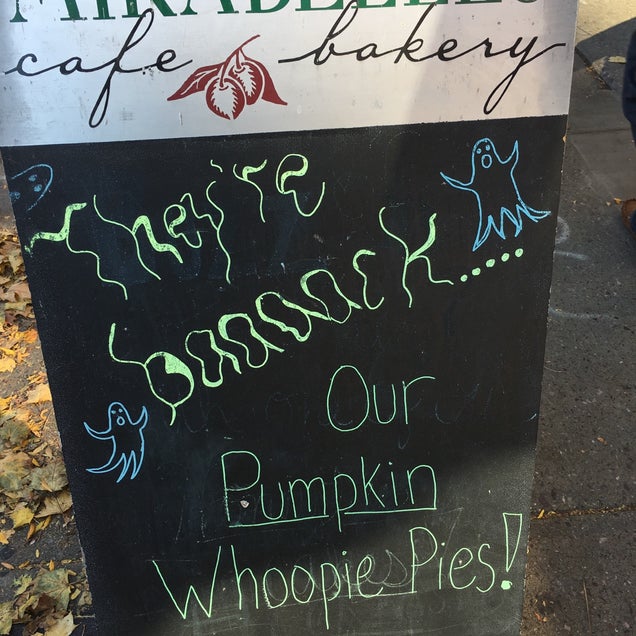 cafe bakery
They're
baaaack.....
Our
Pumpkin
Whoopie Pies!